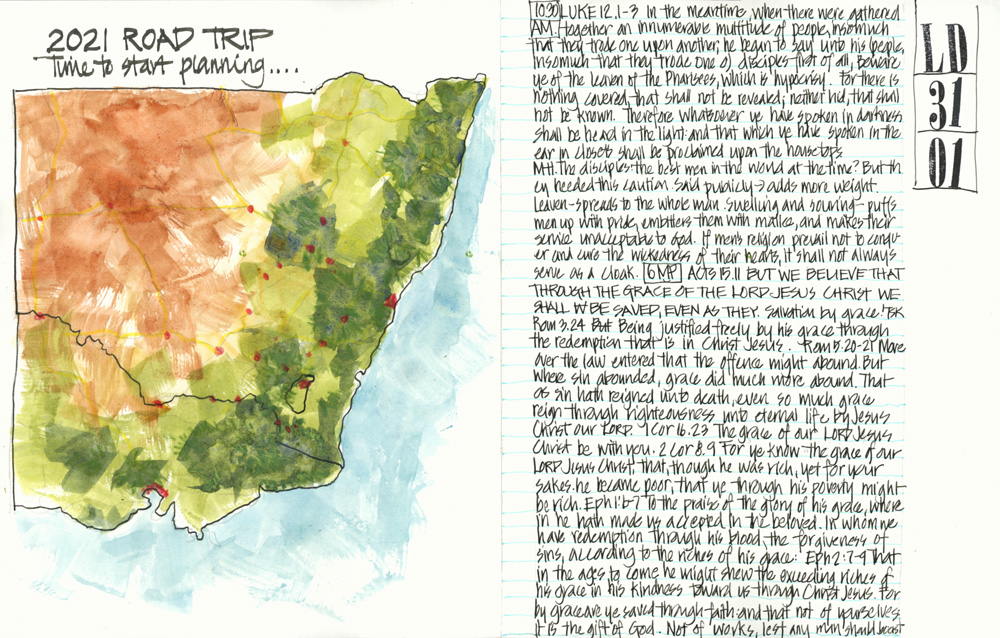 2021 ROAD TRIP
Time to start planning....
10.30 LUKE 12.1-3 In the meantime, when there were gathered
AM. together an innumerable multitude of people, insomuch
that they trode one upon another, he began to say unto his people,
insomuch that they trode one o) disciples first of all, Beware
ye of the leaven of the Pharisees, which is hypocrisy. For there is
nothing covered, that shall not be revealed; neither hid, that shall
not be known. Therefore whatsoever ye have spoken in darkness
shall be heard in the light: and that which ye have spoken in the
ear in closets shall be proclaimed upon the housetops.
MH. The disciples: the best men in the world at the time? But th
ey needed this caution. Said publicly → adds more weight.
Leaven-spreads to the whole man. Swelling and souring - puffs
men up with pride, embitters them with malice, and makes their
service unacceptable to God. If men's religion prevail not to conqu-
er and cure the wickedness of their hearts, it shall not always
serve as a cloak. 6MP ACTS 15.11 BUT WE BELIEVE THAT
THROUGH THE GRACE OF THE LORD JESUS CHRIST WE
SHALL BE SAVED, EVEN AS THEY. Salvation by grace! TSK
Rom 3.24 But Being justified freely by his grace through
the redemption that is in Christ Jesus. Rom 5.20-21 More
over the law entered that the offence might abound. But
where sin abounded, grace did much more abound. That
as sin hath reigned unto death, even so much grace
reign through righteousness unto eternal life by Jesus
Christ our LORD. 1 Cor 16.23 The grace of our LORD Jesus
Christ be with you. 2 Cor 8.9 For ye know the grace of our
LORD Jesus Christ, that, though he was rich, yet for your
sakes he became poor, that ye through his poverty might
be rich. Eph 1:6-7 To the praise of the glory of his grace, where
in he hath made us accepted in the beloved. In whom we
have redemption through his blood, the forgiveness of
sins, according to the riches of his grace: Eph 2:7-9 That
in the ages to come he might shew the exceeding riches of
his grace in his kindness toward us through Christ Jesus. For
by grace are ye saved through faith: and that not of yourselves:
it is the gift of God. Not of works, lest any man should boast
LD
31
01